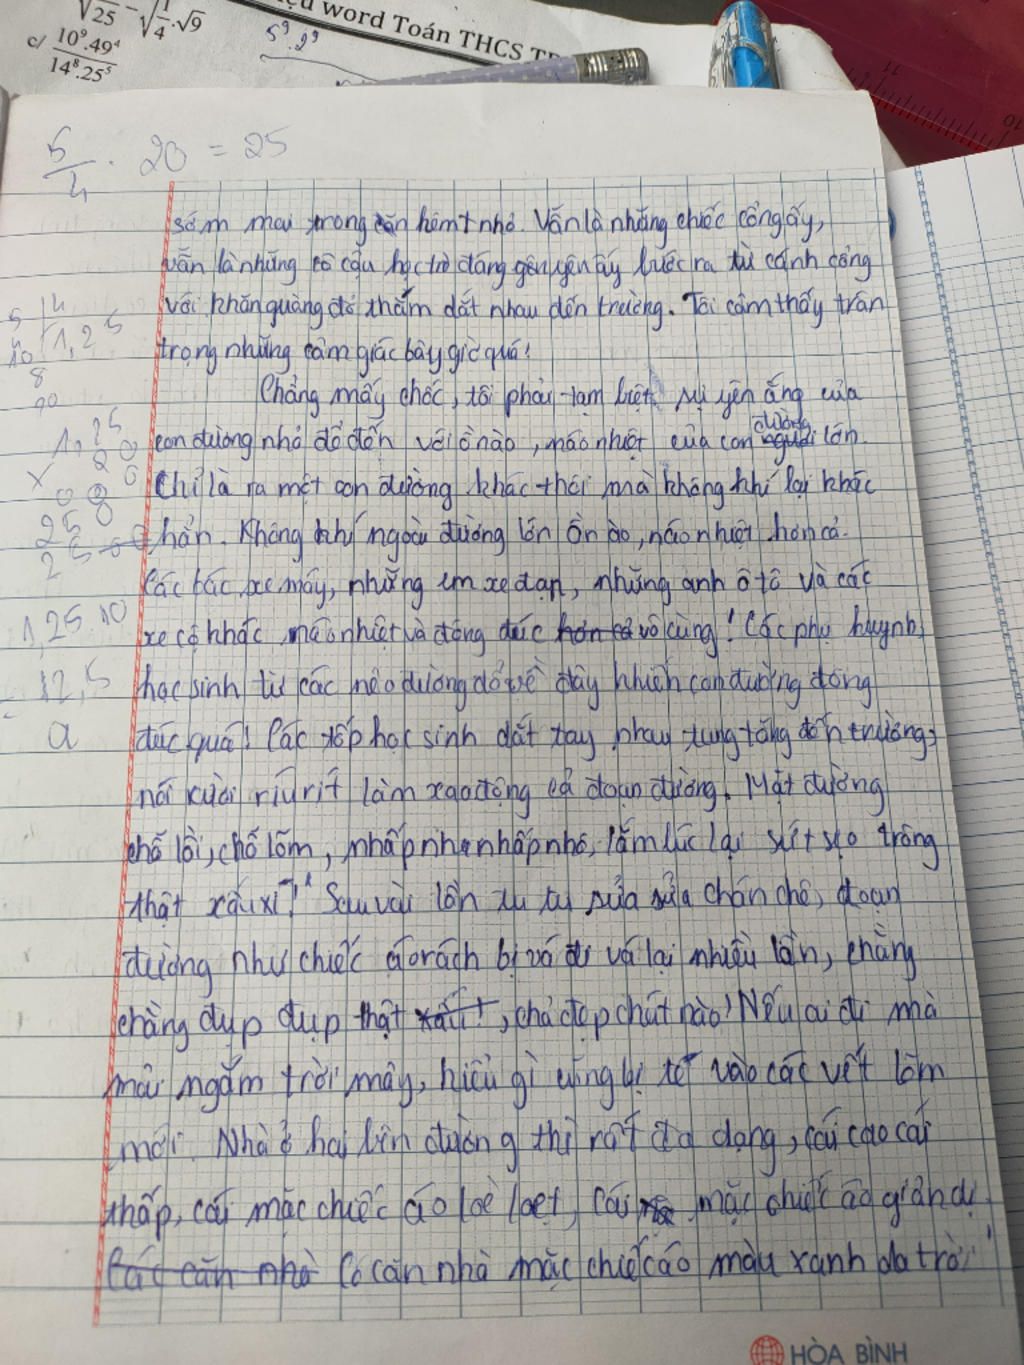 √25 - √1/4 .√9
ệu word Toán THCS
c/ 10⁹.49⁴ / 14⁸.25⁵
5⁹.2⁹
5/4 . 20 = 25
sớm mai trong hẻm nhỏ. Vẫn là những chiếc cổng ấy,
vẫn là những cô cậu học trò đáng yên ấy bước ra từ cánh cổng
với khăn quàng đỏ thắm dắt nhau đến trường. Tôi cảm thấy trân
trọng những cảm giác bây giờ quá!
Chẳng mấy chốc, tôi phải tạm biệt sự yên ắng của
con đường nhỏ để đến với ồn ào, náo nhiệt của con đường lớn.
Chỉ là ra một con đường khác thôi mà không khí lại khác
hẳn. Không khí ngoài đường lớn ồn ào, náo nhiệt hơn cả.
Các bác xe máy, những em xe đạp, những anh ô tô và các
xe cộ khác náo nhiệt và đông đúc hơn cả vô cùng! Các phụ huynh,
học sinh từ các nẻo đường đổ về đây khiến con đường đông
đúc quá! Các tốp học sinh dắt tay nhau tung tăng đến trường,
nói cười ríu rít làm xao động cả đoạn đường. Mặt đường
chỗ lồi, chỗ lõm, nhấp nhô, lắm lúc lại sứt sẹo trông
thật xấu xí! Sau vài lần tu sửa sửa chán chê, đoạn
đường như chiếc áo rách bị vá đi vá lại nhiều lần, chằng
chằng đụp đụp thật xấu!, chả đẹp chút nào! Nếu ai đi mà
mải ngắm trời mây, hiểu gì cũng bị té vào các vết lõm
mới. Nhà ở hai bên đường thì rất đa dạng, cái cao cái
thấp, cái mặc chiếc áo loè loẹt, cái mặc chiếc áo giản dị.
Các căn nhà Có căn nhà mặc chiếc áo màu xanh da trời
5 4
1,25
10
8
1,25
x 20
000
250
1,25 10
12,5
a
11
10
HÒA BÌNH